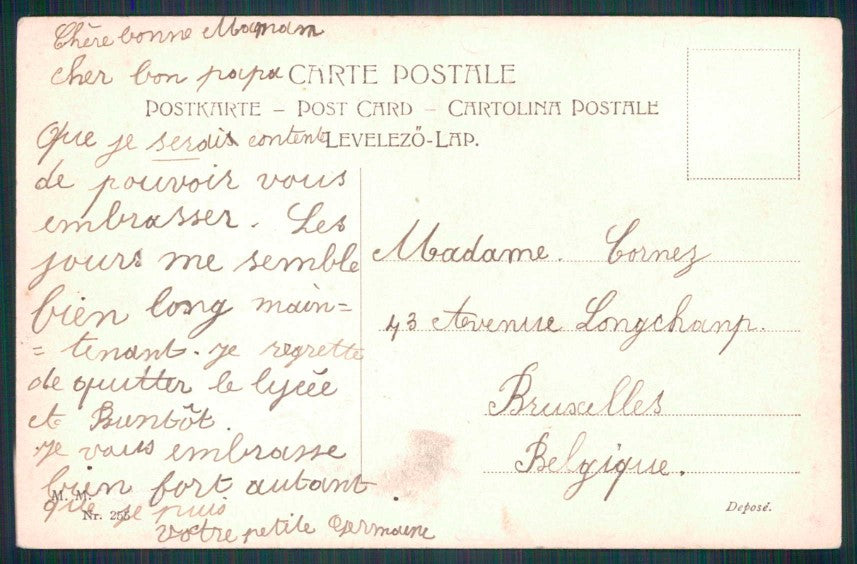 Chère bonne Maman
cher bon papa
CARTE POSTALE
POSTKARTE – POST CARD – CARTOLINA POSTALE
LEVELEZŐ-LAP.
Que je serais content
de pouvoir vous
embrasser. Les
jours me semble
bien long main=
= tenant. je regrette
de quitter le lycée
et Buntôt.
je vous embrasse
bien fort autant
que je puis
votre petite Germaine
Madame. Cornez
43 Avenue Longchamp.
Bruxelles
Belgique.
M. M.
Nr. 255
Deposé.